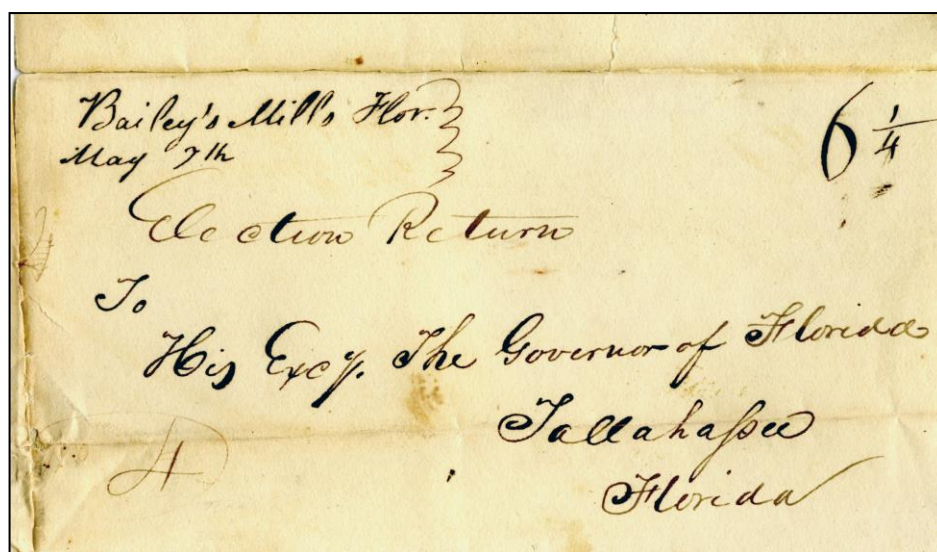 Bailey's Mills Flor.
May 7th
6 1/4
Election Return
To
His Excy. The Governor of Florida
Tallahaſsee
Florida